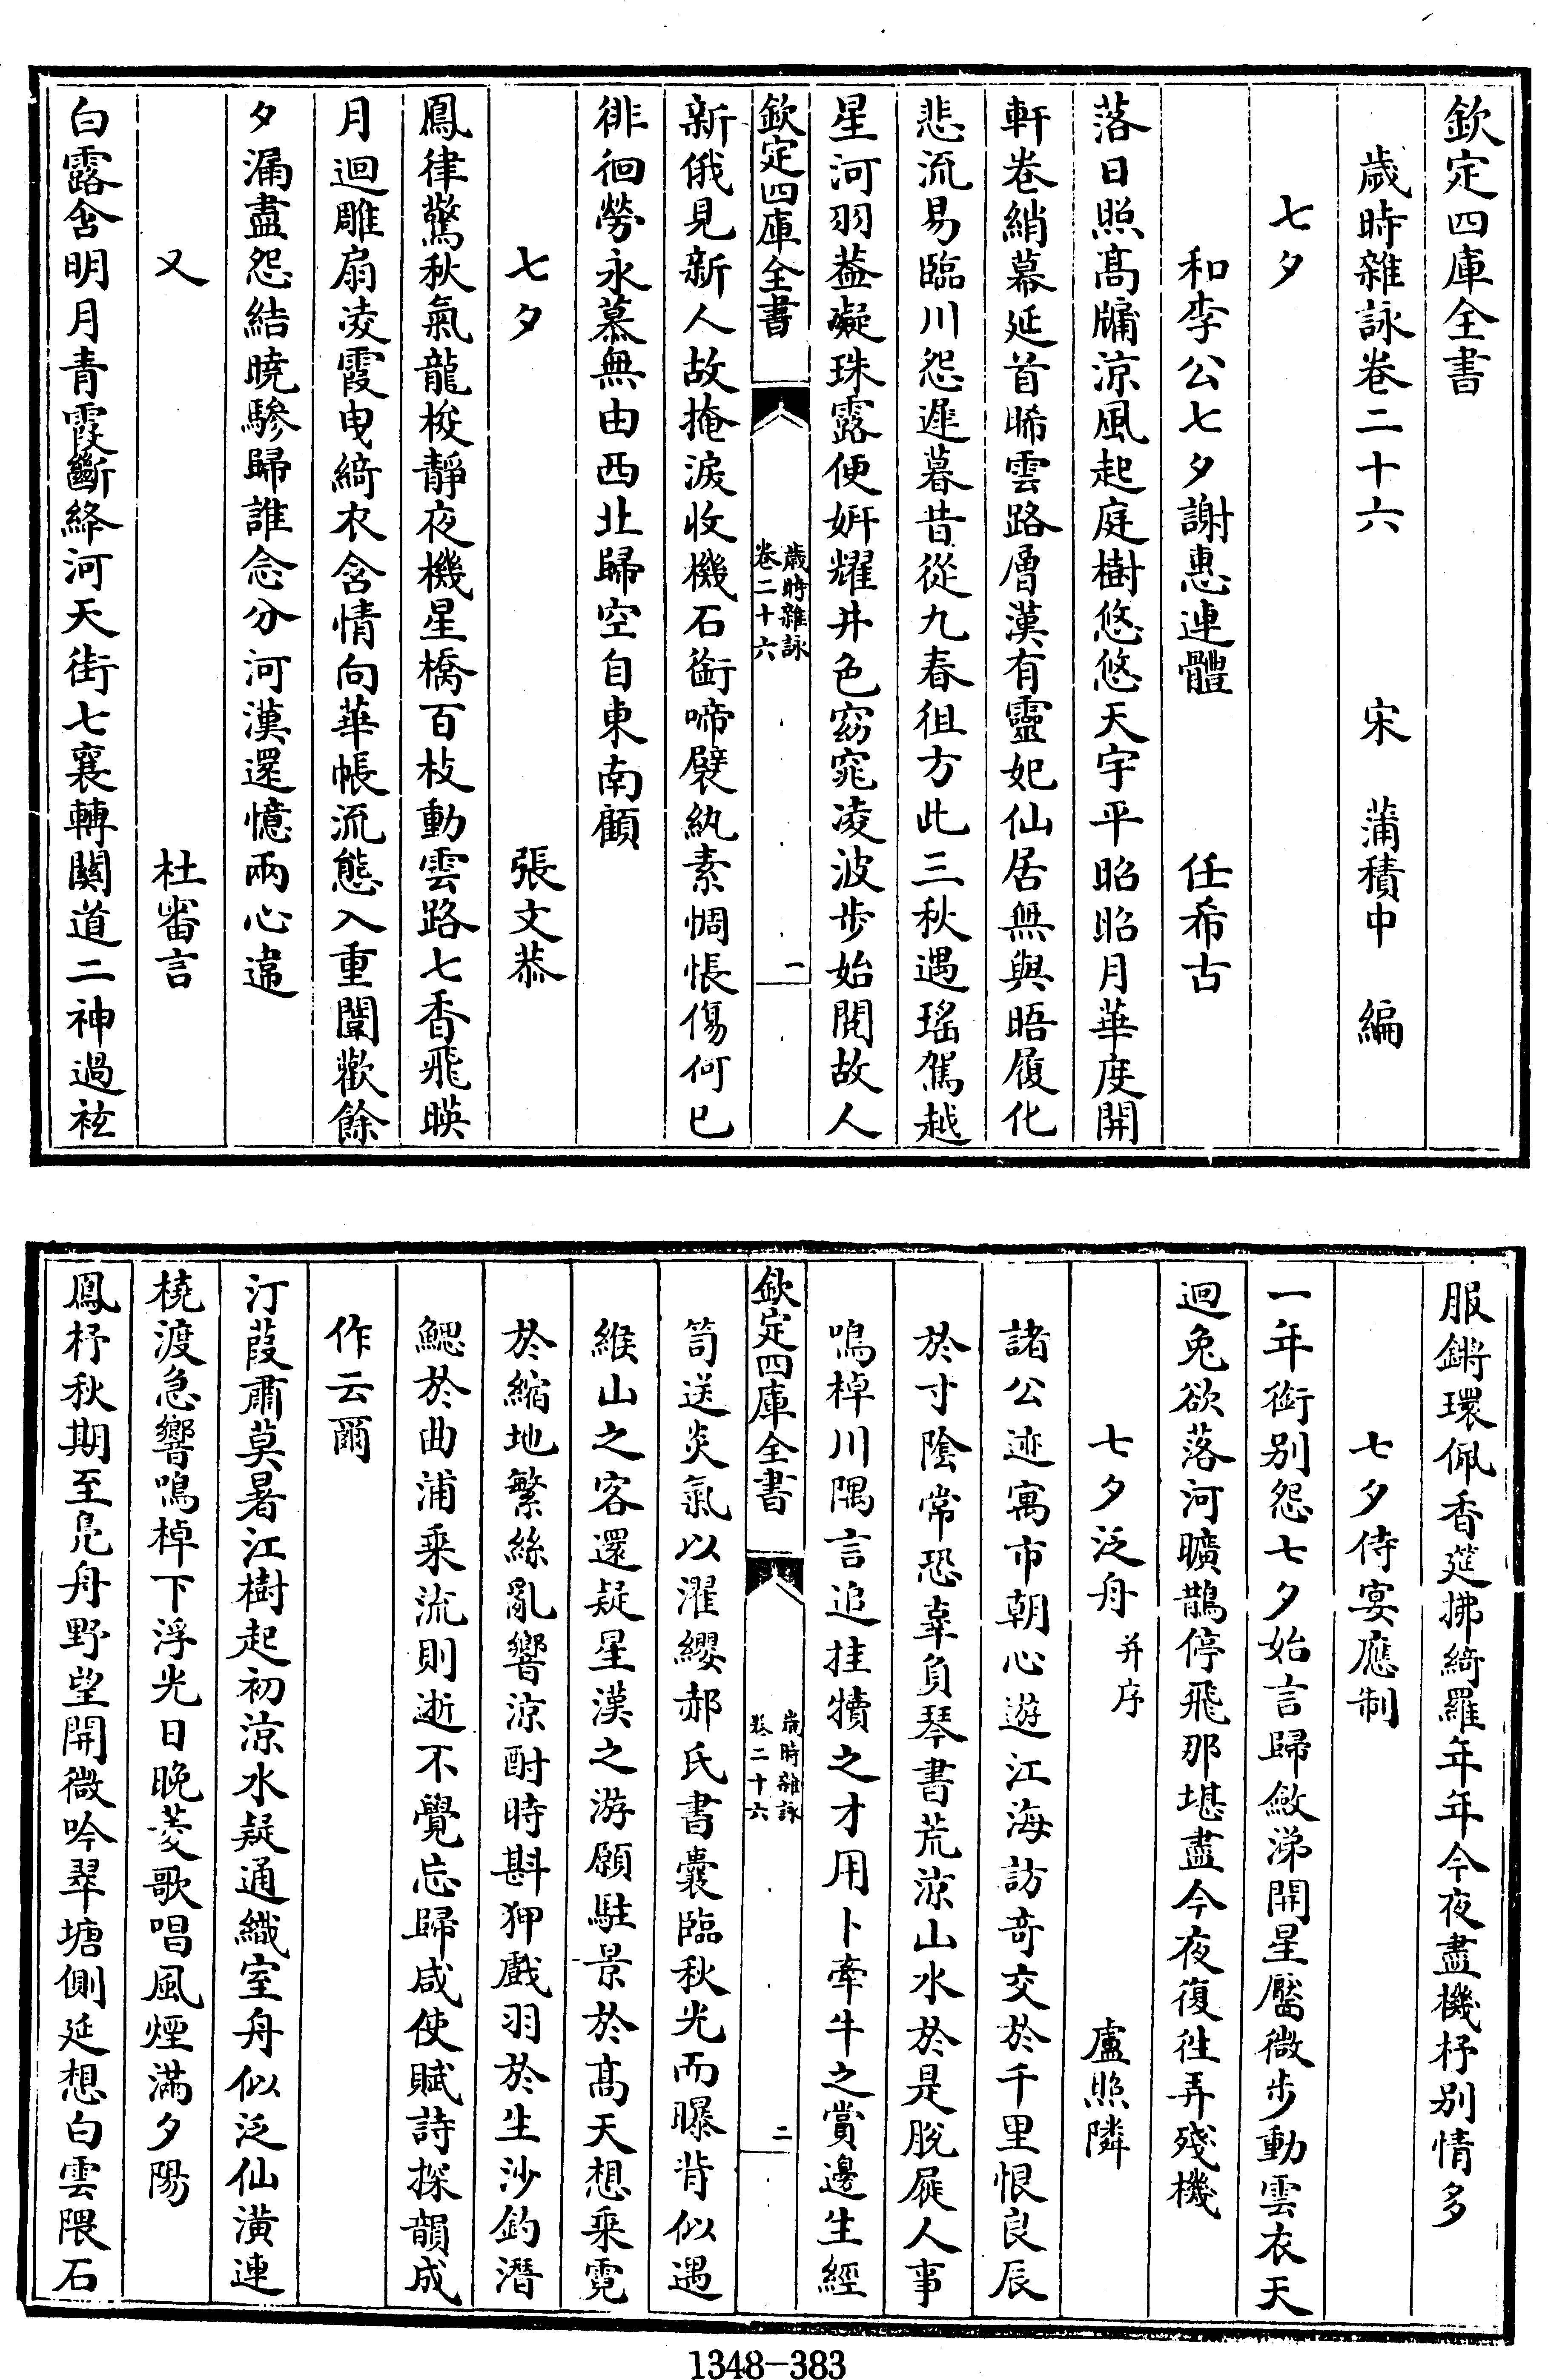 欽定四庫全書
歲時雜詠卷二十六　宋　蒲積中　編
七夕
和李公七夕謝惠連體　任希古
落日照髙牖涼風起庭樹悠悠天宇平昭昭月華度開
軒卷綃幕延首晞雲路層漢有靈妃仙居無與晤履化
悲流易臨川怨遲暮昔從九春徂方此三秋遇瑤駕越
星河羽葢凝珠露便妍耀井色窈窕凌波步始閲故人
欽定四庫全書
歲時雜詠
卷二十六
一
新俄見新人故掩淚收機石銜啼襞紈素惆悵傷何已
徘徊勞永慕無由西北歸空自東南顧
七夕　張文恭
鳳律驚秋氣龍梭靜夜機星橋百枝動雲路七香飛暎
月迴雕扇凌霞曳綺衣含情向華帳流態入重闈歡餘
夕漏盡怨結曉驂歸誰念分河漢還憶兩心違
又　杜審言
白露含明月青霞斷絳河天街七襄轉闕道二神過袨
服鏘環佩香筵拂綺羅年年今夜盡機杼别情多
七夕侍宴應制
一年銜别怨七夕始言歸斂涕開星靨微步動雲衣天
迴兔欲落河曠鵲停飛那堪盡今夜復往弄殘機
七夕泛舟并序　盧照隣
諸公迹寓市朝心遊江海訪奇交於千里恨良辰
於寸陰常恐辜負琴書荒涼山水於是脱屣人事
鳴棹川隅言追挂犢之才用卜牽牛之賞邊生經
欽定四庫全書
歲時雜詠
卷二十六
二
笥送炎氣以濯纓郝氏書囊臨秋光而曝背似遇
緱山之客還疑星漢之游願駐景於髙天想乘霓
於縮地繁絲亂響涼酎時斟狎戲羽於生沙釣潛
鰓於曲浦乘流則逝不覺忘歸咸使賦詩探韻成
作云爾
汀葭肅莫暑江樹起初涼水疑通織室舟似泛仙潢連
橈渡急響鳴棹下浮光日晚菱歌唱風煙滿夕陽
鳳杼秋期至鳧舟野望開微吟翠塘側延想白雲隈石
1348-383